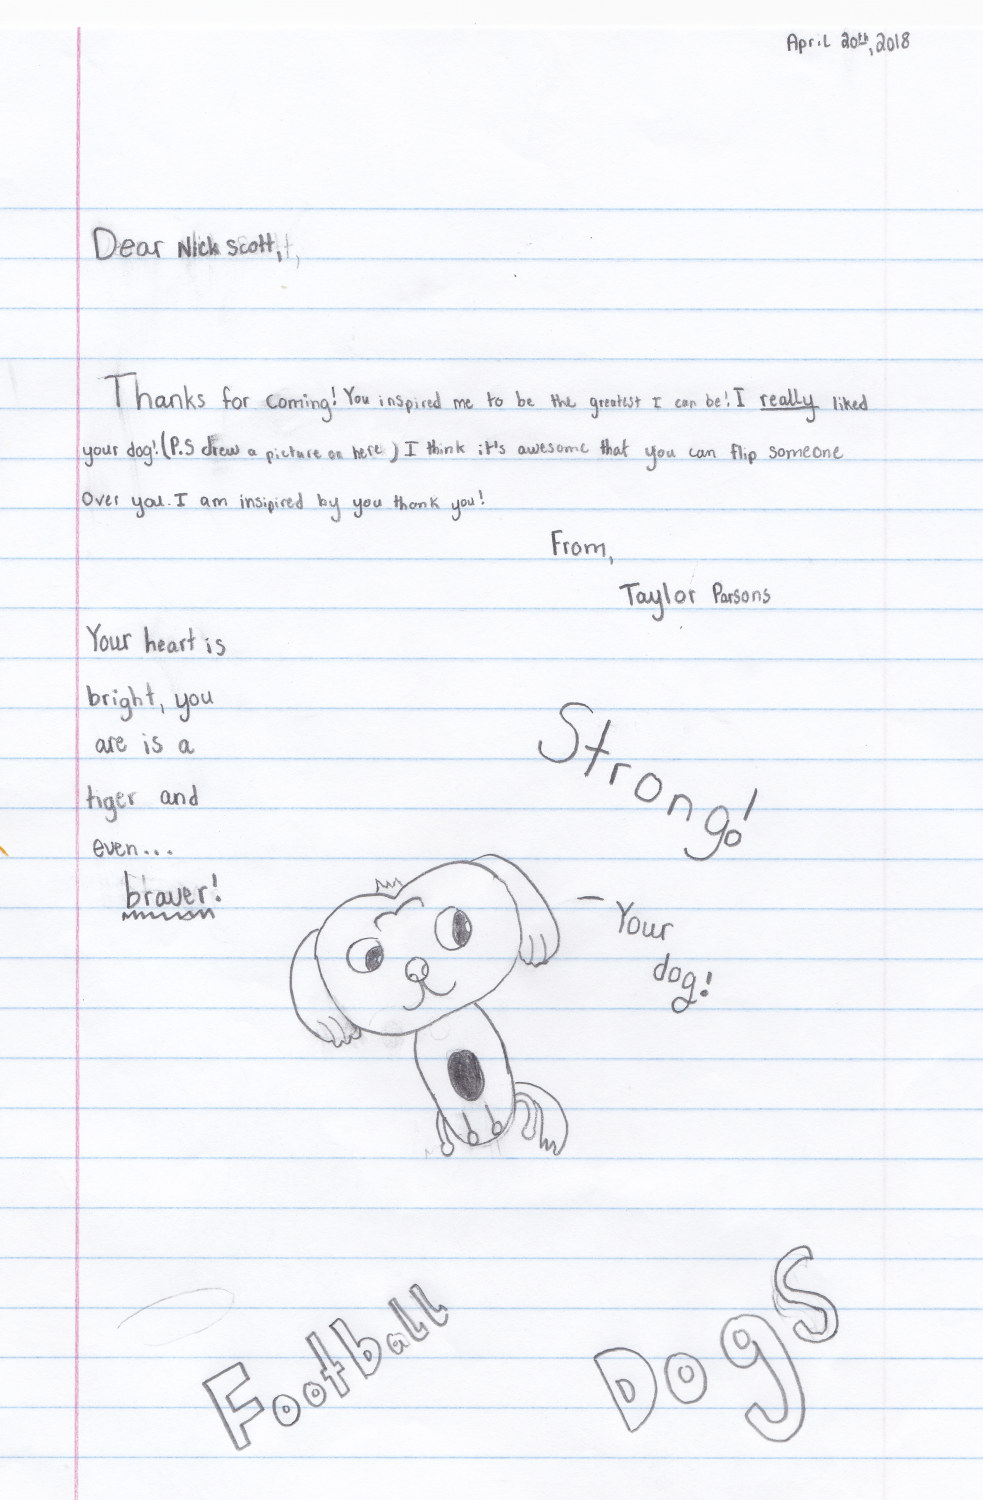 April 20th, 2018
Dear Nick Scott,
Thanks for coming! You inspired me to be the greatest I can be! I really liked
your dog! (P.S drew a picture on here) I think it's awesome that you can flip someone
Over you. I am insipired by you thank you!
From,
Taylor Parsons
Your heart is
bright, you
are is a
tiger and
even...
braver!
Strong!
- Your
dog!
Football
Dogs